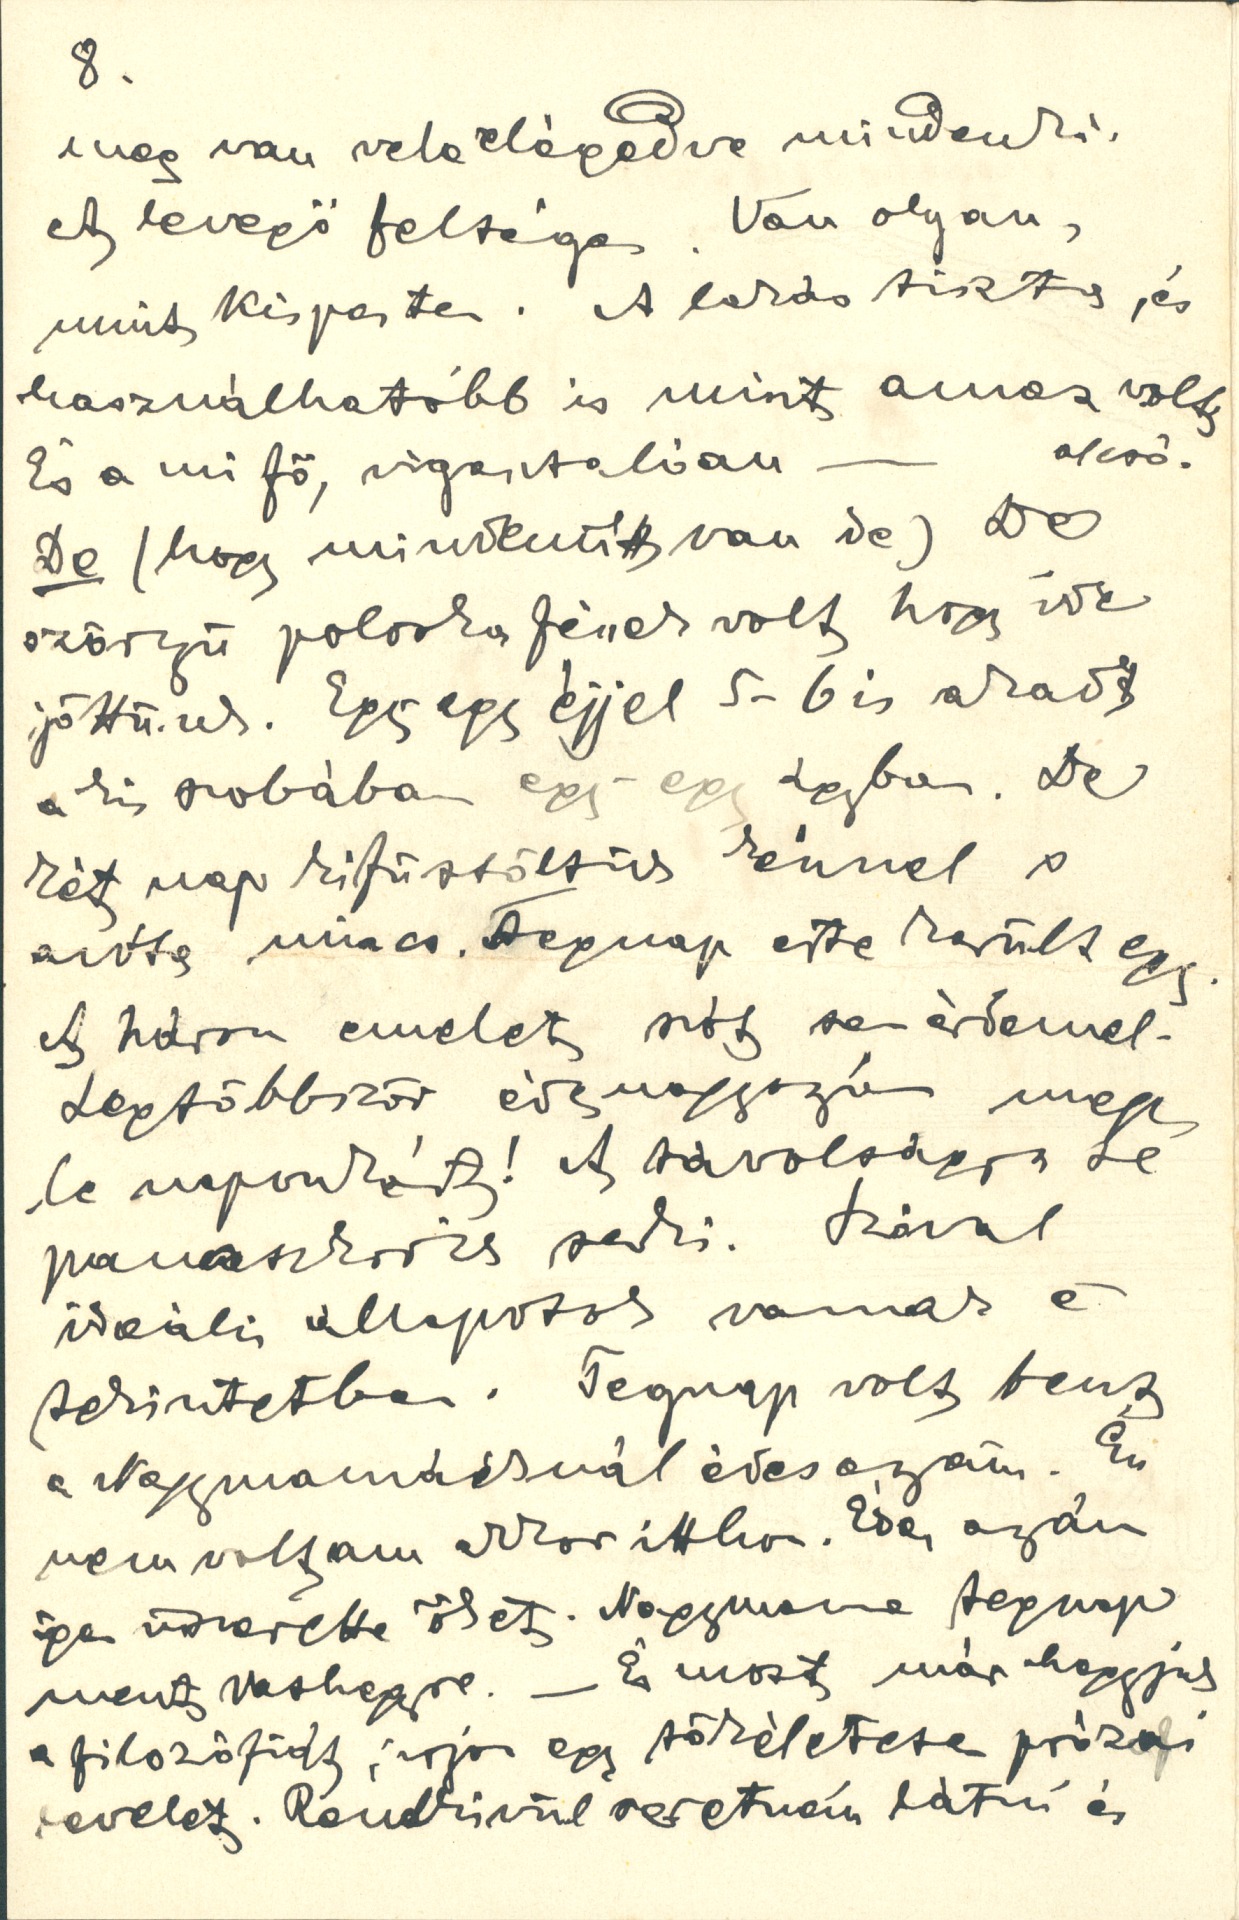 8.
meg van vele elégedve mindenki.
A levegő felséges. Van olyan,
mint Kispesten. A lakás tiszta, és
használhatóbb is mint amaz volt
És a mi fő, vigasztalóan — olcsó.
De (hogy mindenütt van de) De
szörnyű poloska fészek volt hogy ide
jöttünk. Egy egy éjjel 5-6 is akadt
a kis szobában egy-egy ágyban. De
két nap kifüstöltük kénnel s
azóta nincs. Tegnap este került egy.
A három emelet szót se érdemel.
Legtöbbször édes nagyanyám megy
le naponkint! A távolságra se
panaszkodik senki. Szóval
ideális állapotok vannak e
tekintetben. Tegnap volt bent
a Nagymamáéknál édesanyám. Én
nem voltam akkor itthon. Édes anyám
igen üdvözölte őket. Nagymama tegnap
ment Vashegyre. — És most már hagyjuk
a filozófiát, írjon egy tökéletesen prózai
levelet. Rendkívül szeretném látni és